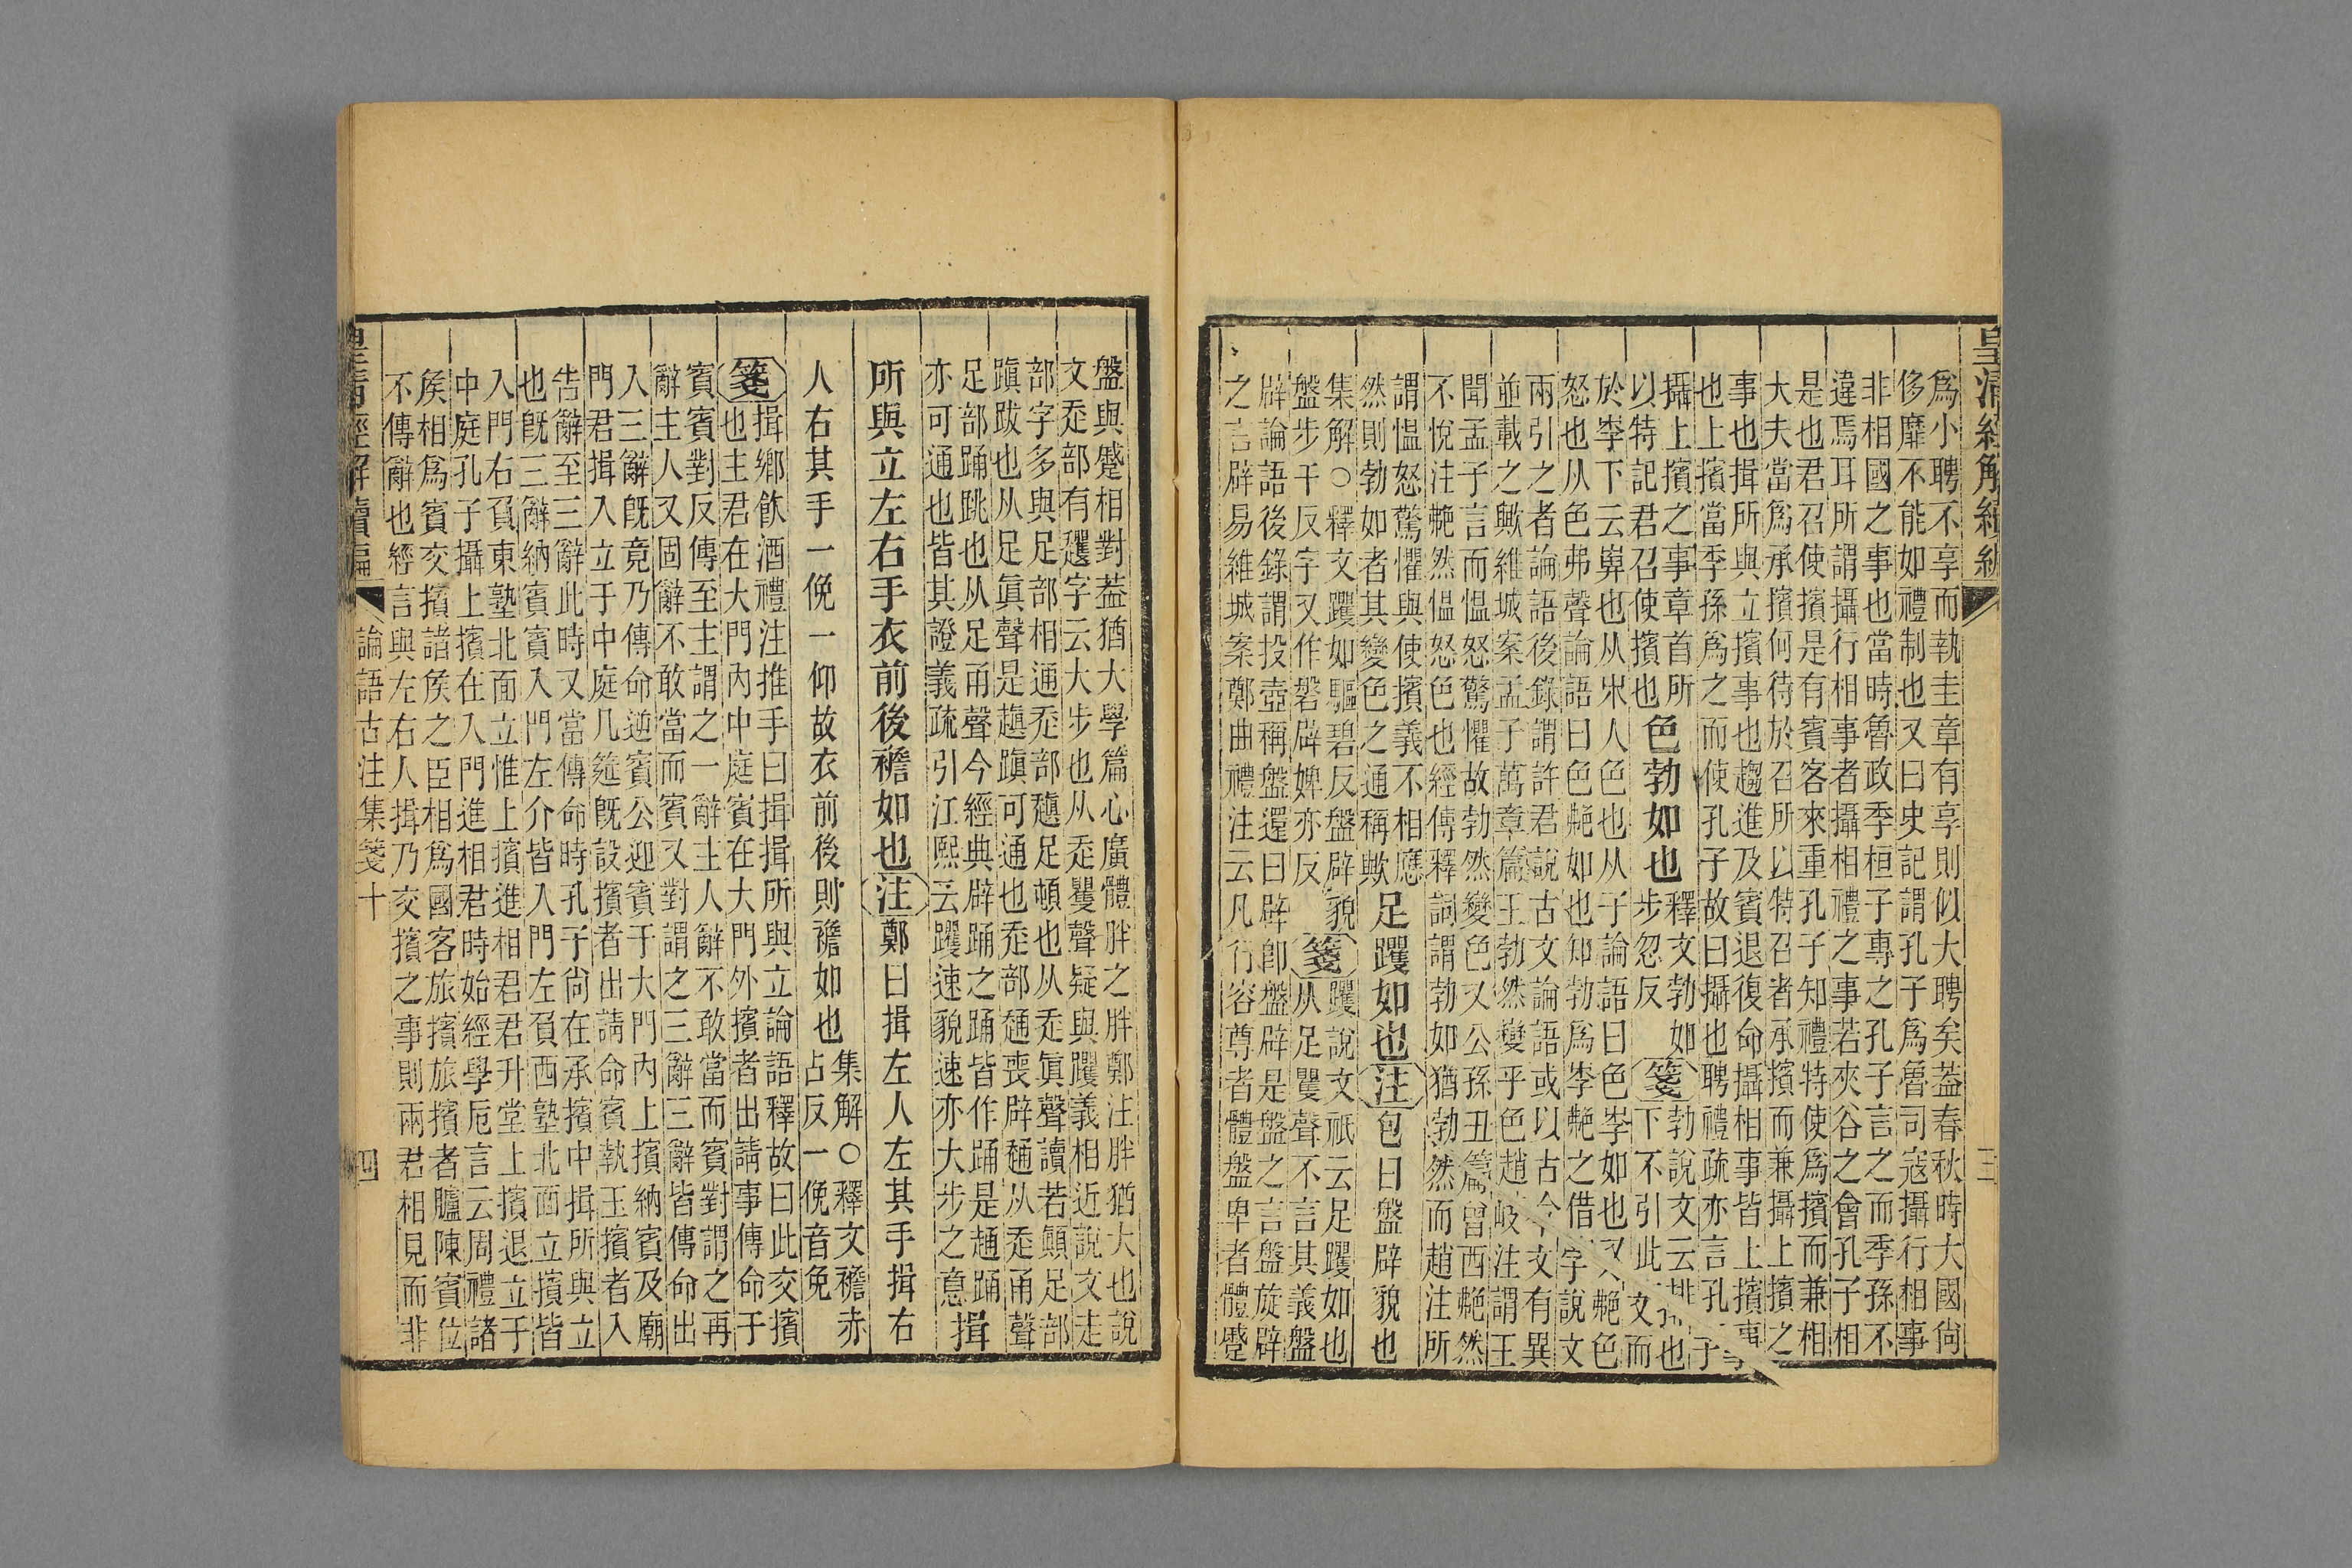 皇清經解續編
三
爲小聘不享而執圭章有享則似大聘矣葢春秋時大國尙
侈靡不能如禮制也又曰史記謂孔子爲魯司寇攝行相事
非相國之事也當時魯政季桓子專之孔子言之而季孫不
違焉耳所謂攝行相事者攝相禮之事若夾谷之會孔子相
是也君召使擯是有賓客來重孔子知禮特使爲擯而兼相
大夫當爲承擯何待於召所以特召者承擯而兼攝上擯之
事也揖所與立擯事也趨進及賓退復命攝相事皆上擯事
也上擯當季孫爲之而使孔子故曰攝也聘禮疏亦言孔子
攝上擯之事章首所
以特記君召使擯也
色勃如也
釋文勃如
步忽反
箋
勃說文云排也
下不引此文而
於孛下云㔢也从𣎵人色也从子論語曰色孛如也又艴色
怒也从色弗聲論語曰色艴如也知勃爲孛艴之借字說文
兩引之者論語後錄謂許君說古文論語或以古今文有異
並載之歟維城案孟子萬章篇王勃然變乎色趙岐注謂王
聞孟子言而愠怒驚懼故勃然變色又公孫丑篇曾西艴然
不悅注艴然愠怒色也經傳釋詞謂勃如猶勃然而趙注所
謂愠怒驚懼與使擯義不相應
然則勃如者其變色之通稱歟
足躩如也注包曰盤辟貌也
集解○釋文躩如驅碧反盤辟貌
盤步干反字又作磐辟婢亦反
箋
躩說文祇云足躩如也
从足矍聲不言其義盤
辟論語後錄謂投壺稱盤還曰辟卽盤辟是盤之言盤旋辟
之言辟易維城案鄭曲禮注云凡行容尊者體盤卑者體蹙
盤與蹙相對葢猶大學篇心廣體胖之胖鄭注胖猶大也說
文赱部有趯字云大步也从赱矍聲疑與躩義相近說文走
部字多與足部相通赱部𧽍足頓也从赱眞聲讀若顚足部
蹎跋也从足眞聲是𧽍蹎可通也赱部趫喪辟趫从赱甬聲
足部踊跳也从足甬聲今經典辟踊之踊皆作踊是趫踊
亦可通也皆其證義疏引江熙云躩速貌速亦大步之意
揖
所與立左右手衣前後襜如也注鄭曰揖左人左其手揖右
人右其手一俛一仰故衣前後則襜如也
集解○釋文襜赤
占反一俛音免
箋
揖鄉飲酒禮注推手曰揖揖所與立論語釋故曰此交擯
也主君在大門內中庭賓在大門外擯者出請事傳命于
賓賓對反傳至主謂之一辭主人辭不敢當而賓對謂之再
辭主人又固辭不敢當而賓又對謂之三辭三辭皆傳命出
入三辭旣竟乃傳命逆賓公迎賓于大門內上擯納賓及廟
門君揖入立于中庭几筵旣設擯者出請命賓執玉擯者入
告辭至三辭此時又當傳命時孔子尙在承擯中揖所與立
也旣三辭納賓賓入門左介皆入門左負西塾北面立擯皆
入門右負東塾北面立惟上擯進相君君升堂上擯退立于
中庭孔子攝上擯在入門進相君時始經學卮言云周禮諸
矦相爲賓交擯諸矦之臣相爲國客旅擯旅擯者臚陳賓位
不傳辭也經言與左右人揖乃交擯之事則兩君相見而非
皇清經解續編
論語古注集箋十
四